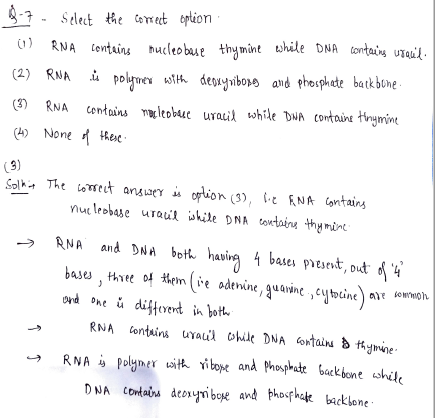 Q-7 - Select the correct option.
(1) RNA contains nucleobase thymine while DNA contains uracil.
(2) RNA is polymer with deoxyribose and phosphate backbone.
(3) RNA contains nucleobase uracil while DNA contains thymine
(4) None of these.
(3)
Solⁿ→ The correct answer is option (3), i.e RNA contains
nucleobase uracil while DNA contains thymine
→ RNA and DNA both having 4 bases present, out of '4'
bases, three of them (i.e adenine, guanine, cytocine) are common
and one is different in both.
→ RNA contains uracil while DNA contains thymine.
→ RNA is polymer with ribose and phosphate backbone while
DNA contains deoxyribose and phosphate backbone.